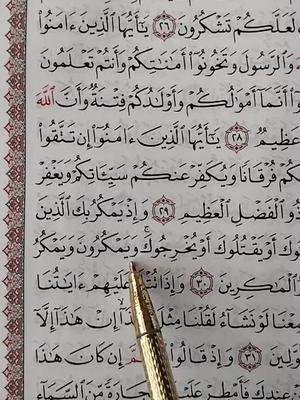 لَعَلَّكُمْ تَشْكُرُونَ ٢٦ يَٰٓأَيُّهَا ٱلَّذِينَ ءَامَنُوا۟
وَٱلرَّسُولَ وَتَخُونُوٓا۟ أَمَٰنَٰتِكُمْ وَأَنتُمْ تَعْلَمُونَ
أَنَّمَآ أَمْوَٰلُكُمْ وَأَوْلَٰدُكُمْ فِتْنَةٌ وَأَنَّ ٱللَّهَ
عَظِيمٌ ٢٨ يَٰٓأَيُّهَا ٱلَّذِينَ ءَامَنُوٓا۟ إِن تَتَّقُوا۟
فُرْقَانًا وَيُكَفِّرْ عَنكُمْ سَيِّـَٔاتِكُمْ وَيَغْفِرْ
ذُو ٱلْفَضْلِ ٱلْعَظِيمِ ٢٩ وَإِذْ يَمْكُرُ بِكَ ٱلَّذِينَ
أَوْ يَقْتُلُوكَ أَوْ يُخْرِجُوكَ ۚ وَيَمْكُرُونَ وَيَمْكُرُ
ٱلْمَٰكِرِينَ ٣٠ وَإِذَا تُتْلَىٰ عَلَيْهِمْ ءَايَٰتُنَا
لَوْ نَشَآءُ لَقُلْنَا مِثْلَ هَٰذَآ ۙ إِنْ هَٰذَآ إِلَّآ
٣١ وَإِذْ قَالُوا۟ إِن كَانَ هَٰذَا
عِندِكَ فَأَمْطِرْ حِجَارَةً مِّنَ ٱلسَّمَآءِ